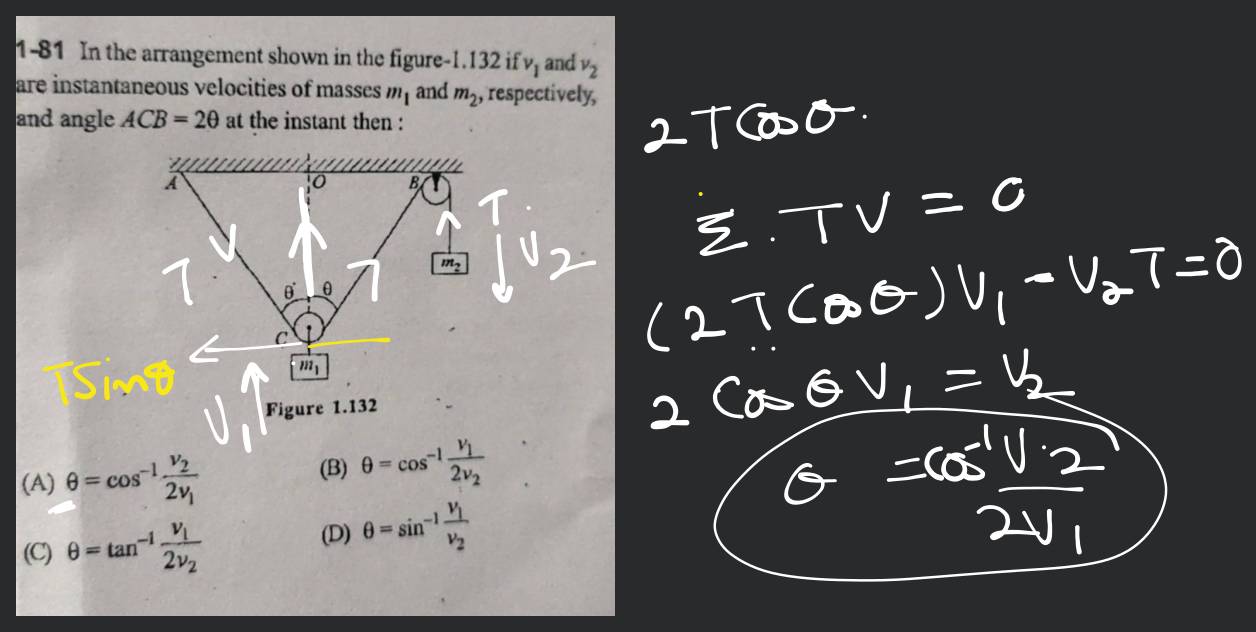 1-81 In the arrangement shown in the figure-1.132 if v₁ and v₂
are instantaneous velocities of masses m₁ and m₂, respectively,
and angle ACB = 2θ at the instant then :
A O B
T V T T V₂
m₂
θ θ
C
m₁
TSinθ
V₁
Figure 1.132
(A) θ = cos⁻¹ v₂/2v₁ (B) θ = cos⁻¹ v₁/2v₂
(C) θ = tan⁻¹ v₁/2v₂ (D) θ = sin⁻¹ v₁/v₂
2TCosθ.
Σ.TV = 0
(2TCosθ)V₁ - V₂T = 0
2 Cosθ V₁ = V₂
θ = Cos⁻¹ V.2/2V₁